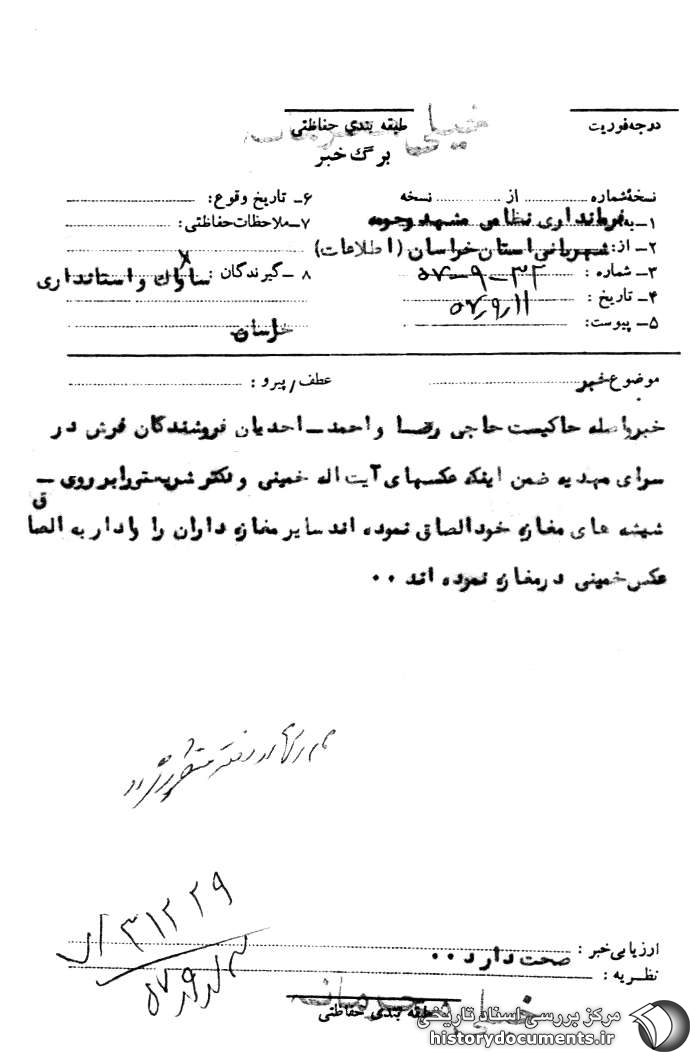 درجه فوریت
طبقه بندی حفاظتی
خیلی محرمانه
برگ خبر
نسخهٔ شماره ........ از ........ نسخه
۱ـ به فرمانداری نظامی مشهد وحومه
۲ـ از: شهربانی استان خراسان (اطلاعات)
۳ـ شماره : ۳۲-۹-۵۷
۴ـ تاریخ : ۵۷/۹/۱۱
۵ـ پیوست:
۶ـ تاریخ وقوع:
۷ـ ملاحظات حفاظتی:
۸ ـ گیرندگان : ساواک و استانداری
خراسان
موضوع خبر
عطف / پیرو :
خبرواصله حاکیست حاجی رضا واحمد ـ احدیان فروشندگان فرش در
سرای مهدیه ضمن اینکه عکسهای آیت اله خمینی و دکتر شریعتی را بر روی ـ
شیشه های مغازه خود الصاق نموده اند سایر مغازه داران را وادار به الصاق
عکس خمینی در مغازه نموده اند ۰۰
۳۱۲۲۹
ارزیابی خبر : صحت دارد ۰۰
نظریه :
طبقه بندی حفاظتی
خیلی محرمانه
مرکز بررسی اسناد تاریخی
historydocuments.ir